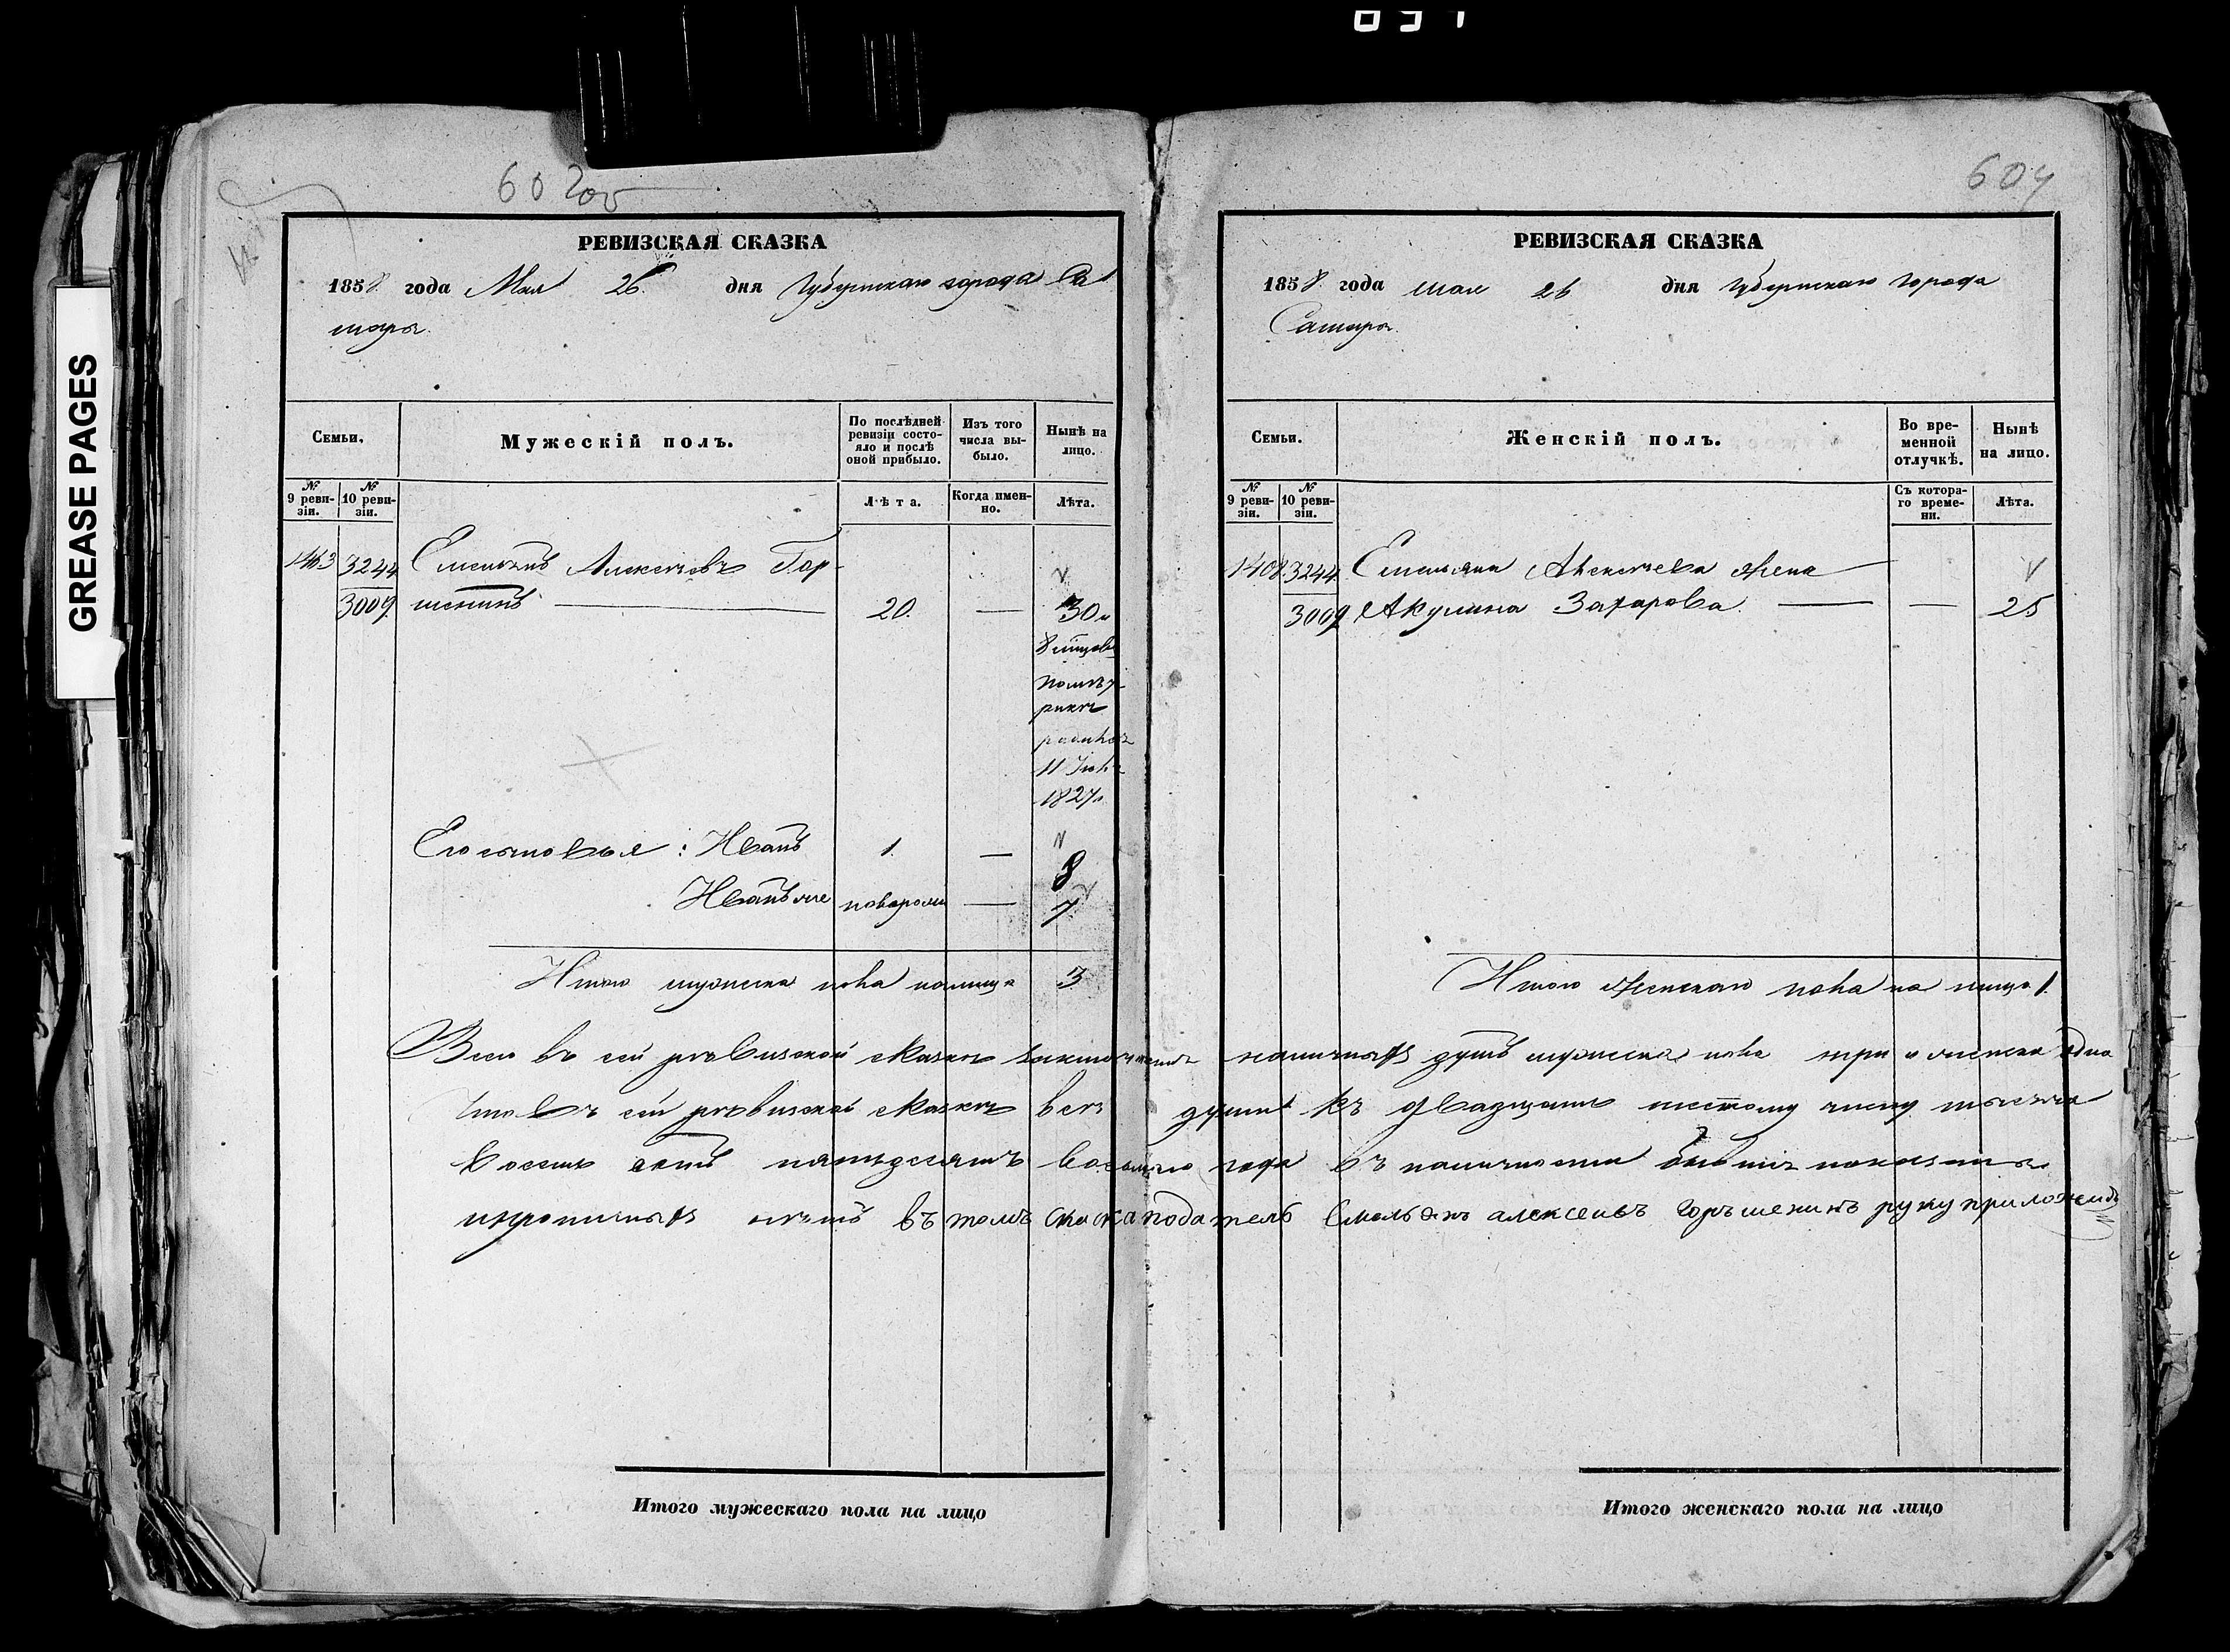 GREASE PAGES
603 об
РЕВИЗСКАЯ СКАЗКА
1858 года Мая 26 дня Губернскаго города Са
мары
Семьи.
Мужескій полъ.
По послѣдней
ревизіи состо-
яло и послѣ
оной прибыло.
Изъ того
числа вы-
было.
Нынѣ на
лицо.
№ 9 реви-
зіи.
№ 10 реви-
зіи.
Лѣта.
Когда имен-
но.
Лѣта.
1463 3244 Емельянъ Алексѣевъ Гор-
3009 шенинъ 20. — 30 и
8 мѣсцовъ
по метр
рикѣ
родился
1827
Его сыновья: Иванъ 1. — 8
Иванъ же новорож — 7
Итого мужеска пола налицо 3
Итого мужескаго пола на лицо
604
РЕВИЗСКАЯ СКАЗКА
1858 года мая 26 дня Губернскаго города
Самары
Семьи.
Женскій полъ.
Во вре-
менной
отлучкѣ.
Нынѣ
на лицо.
№ 9 реви-
зіи.
№ 10 реви-
зіи.
Съ котора-
го време-
ни.
Лѣта.
3244 Емельяна Алексѣева жена
3009 Акулина Захарова. — — 25
Итого женскаго пола на лицо 1.
Всего въ сей ревизской сказкѣ заключается наличныхъ душъ мужеска пола три и женска одна
Что въ сей ревизской сказкѣ всѣ души къ двадцать шестому числу тысяча
восемь сотъ пятьдесятъ восьмаго года въ наличности бывшіе показаны
и прописныхъ нѣтъ въ томъ скаскаподатель Емельянъ алексеивъ горъшенинъ руку приложилъ
Итого женскаго пола на лицо